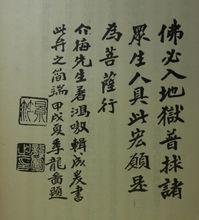 佛必入地獄普採諸
眾生人具此宏願是
為菩薩行
介梅先生著鴻嗷輯成爰書
此弁之簡端甲戌夏季龍